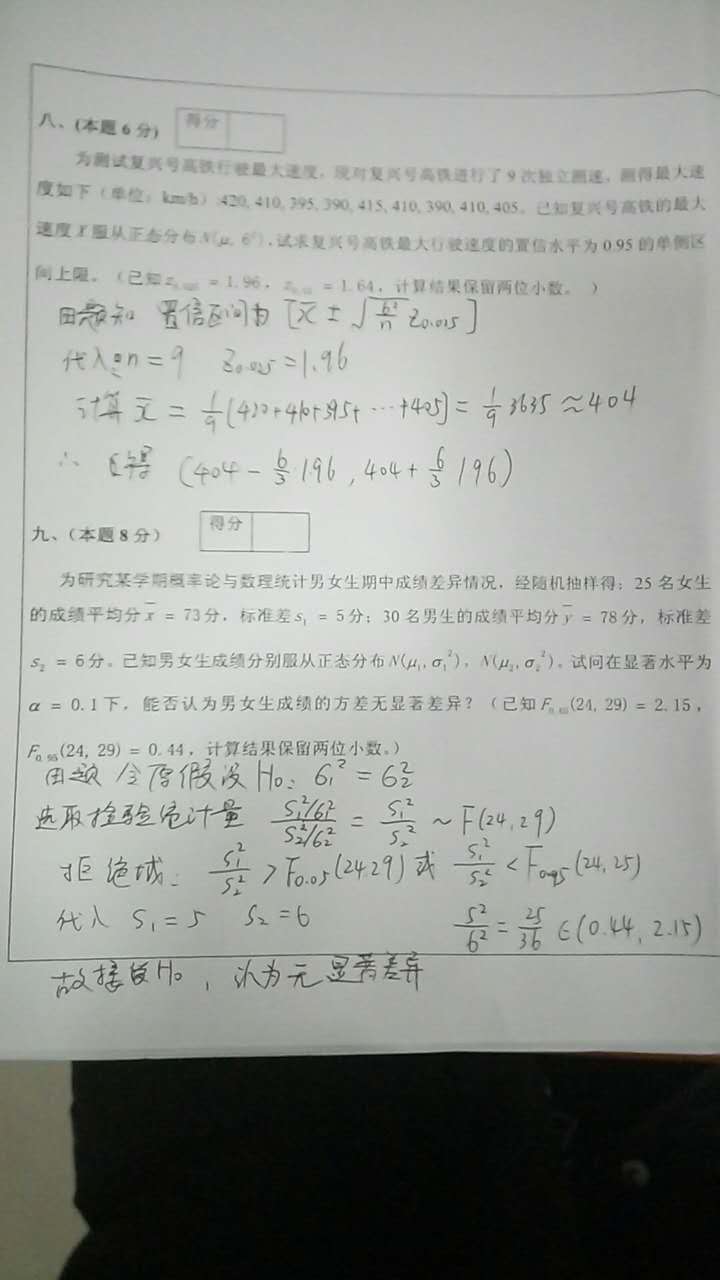 八、(本题6分) 得分
为测试复兴号高铁行驶最大速度，现对复兴号高铁进行了9次独立测速，测得最大速
度如下（单位：km/h）:420, 410, 395, 390, 415, 410, 390, 410, 405。已知复兴号高铁的最大
速度X服从正态分布N(μ, 6²),试求复兴号高铁最大行驶速度的置信水平为0.95的单侧区
间上限。（已知z₀.₀₂₅ = 1.96，z₀.₀₅ = 1.64，计算结果保留两位小数。）
由题知 置信区间为 [x̄ ± √(6²/n) Z₀.₀₂₅]
代入 n = 9 Z₀.₀₂₅ = 1.96
计算 x̄ = 1/9 [420+410+395+ ⋯ +405] = 1/9 3635 ≈ 404
∴ 得 (404 − 6/3 1.96 , 404 + 6/3 1.96)
九、（本题8分） 得分
为研究某学期概率论与数理统计男女生期中成绩差异情况，经随机抽样得：25名女生
的成绩平均分x̄ = 73分，标准差s₁ = 5分；30名男生的成绩平均分ȳ = 78分，标准差
s₂ = 6分。已知男女生成绩分别服从正态分布N(μ₁, σ₁²)，N(μ₂, σ₂²)。试问在显著水平为
α = 0.1下，能否认为男女生成绩的方差无显著差异？（已知F₀.₀₅(24, 29) = 2.15，
F₀.₉₅(24, 29) = 0.44，计算结果保留两位小数。）
由题 令原假设H₀: σ₁² = σ₂²
选取检验统计量 (S₁²/σ₁²)/(S₂²/σ₂²) = S₁²/S₂² ~ F(24, 29)
拒绝域: S₁²/S₂² > F₀.₀₅(24 29) 或 S₁²/S₂² < F₀.₉₅(24, 25)
代入 S₁ = 5 S₂ = 6 5²/6² = 25/36 ∈ (0.44, 2.15)
故接受H₀，认为无显著差异